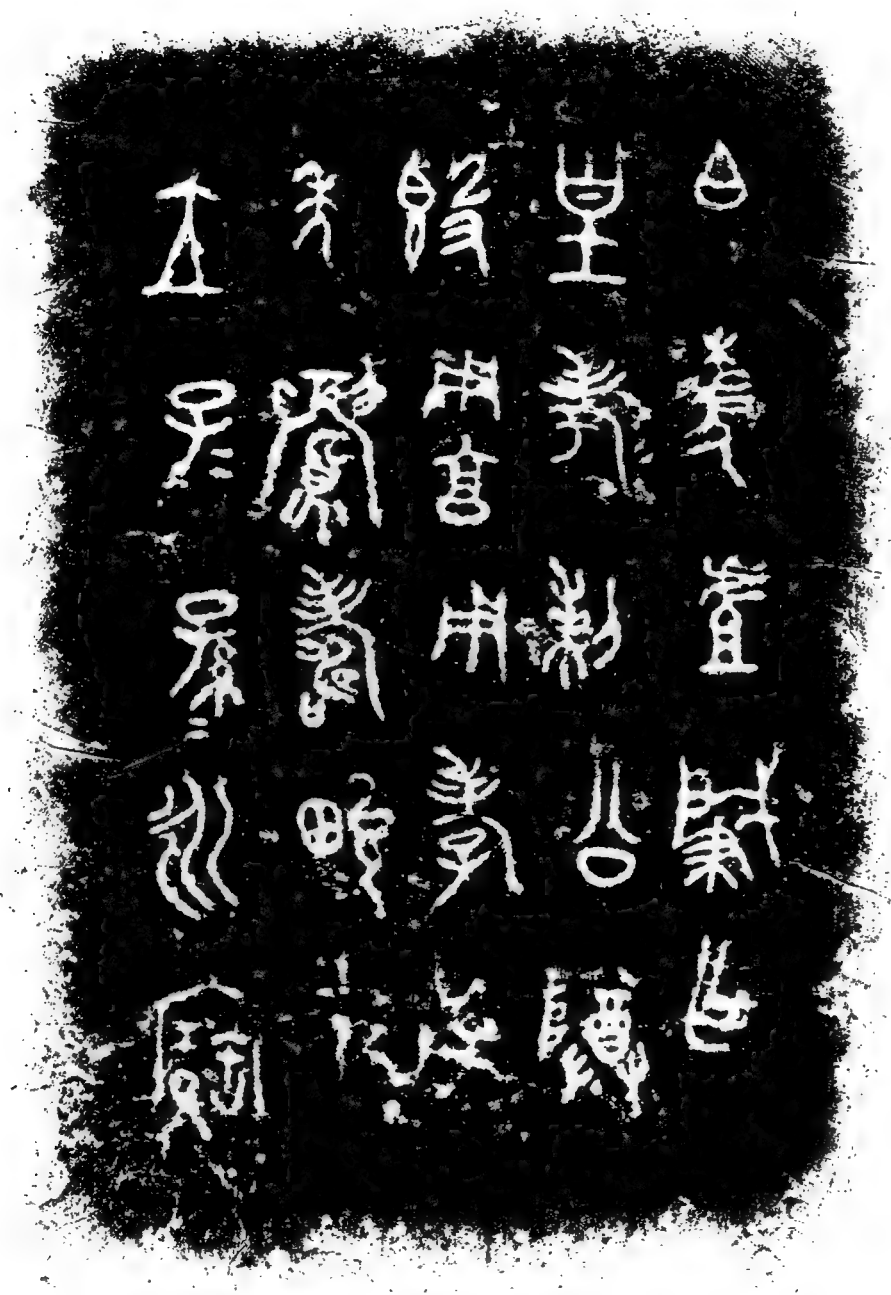 白虘肇乍
皇考剌公尊
𣪘用亯用孝萬
年眉壽畯才
立子子孫孫永寶